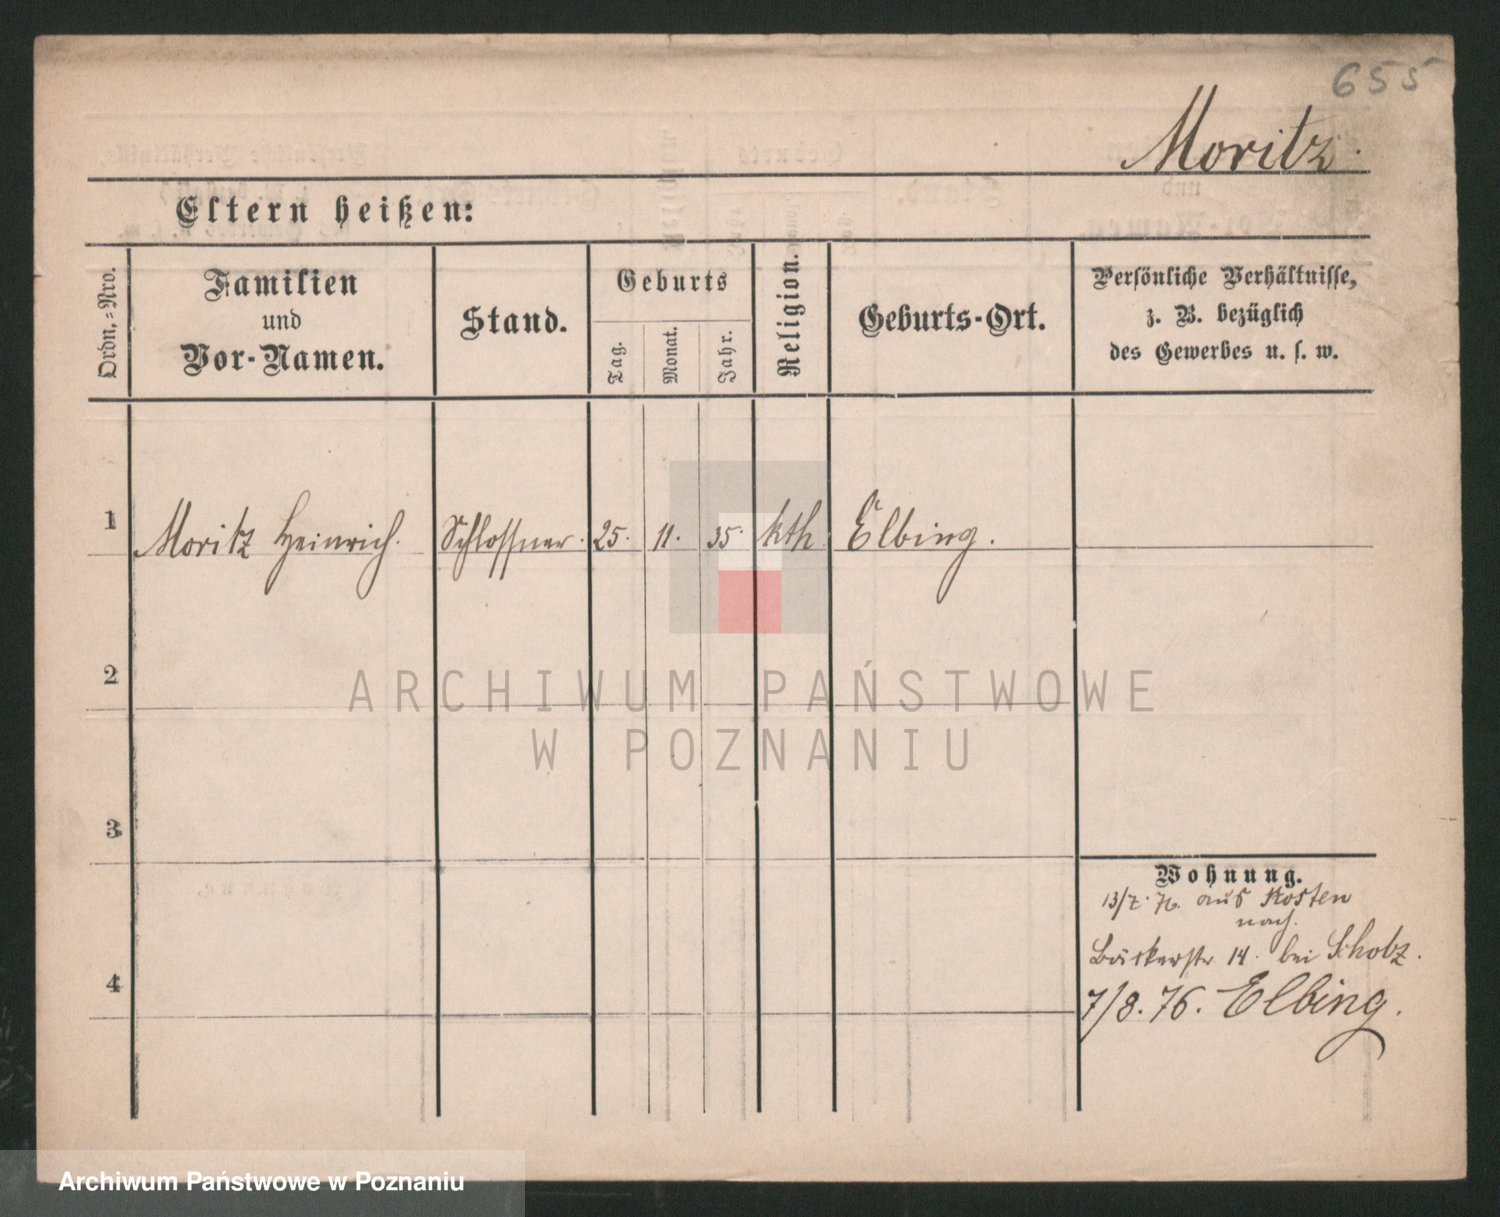 655
Moritz.
Eltern heißen:
Ordn.-Nro.
Familien
und
Vor-Namen.
Stand.
Geburts
Tag.
Monat.
Jahr.
Religion.
Geburts-Ort.
Persönliche Verhältnisse,
z. B. bezüglich
des Gewerbes u. s. w.
1 Moritz Heinrich. Schlosser. 25. 11. 35. kth Elbing.
2
3
4
Wohnung.
13/7. 76. aus Kosten
nach.
Bäckerstr 14. bei Scholz.
7/8. 76. Elbing.
ARCHIWUM PAŃSTWOWE
W POZNANIU
Archiwum Państwowe w Poznaniu